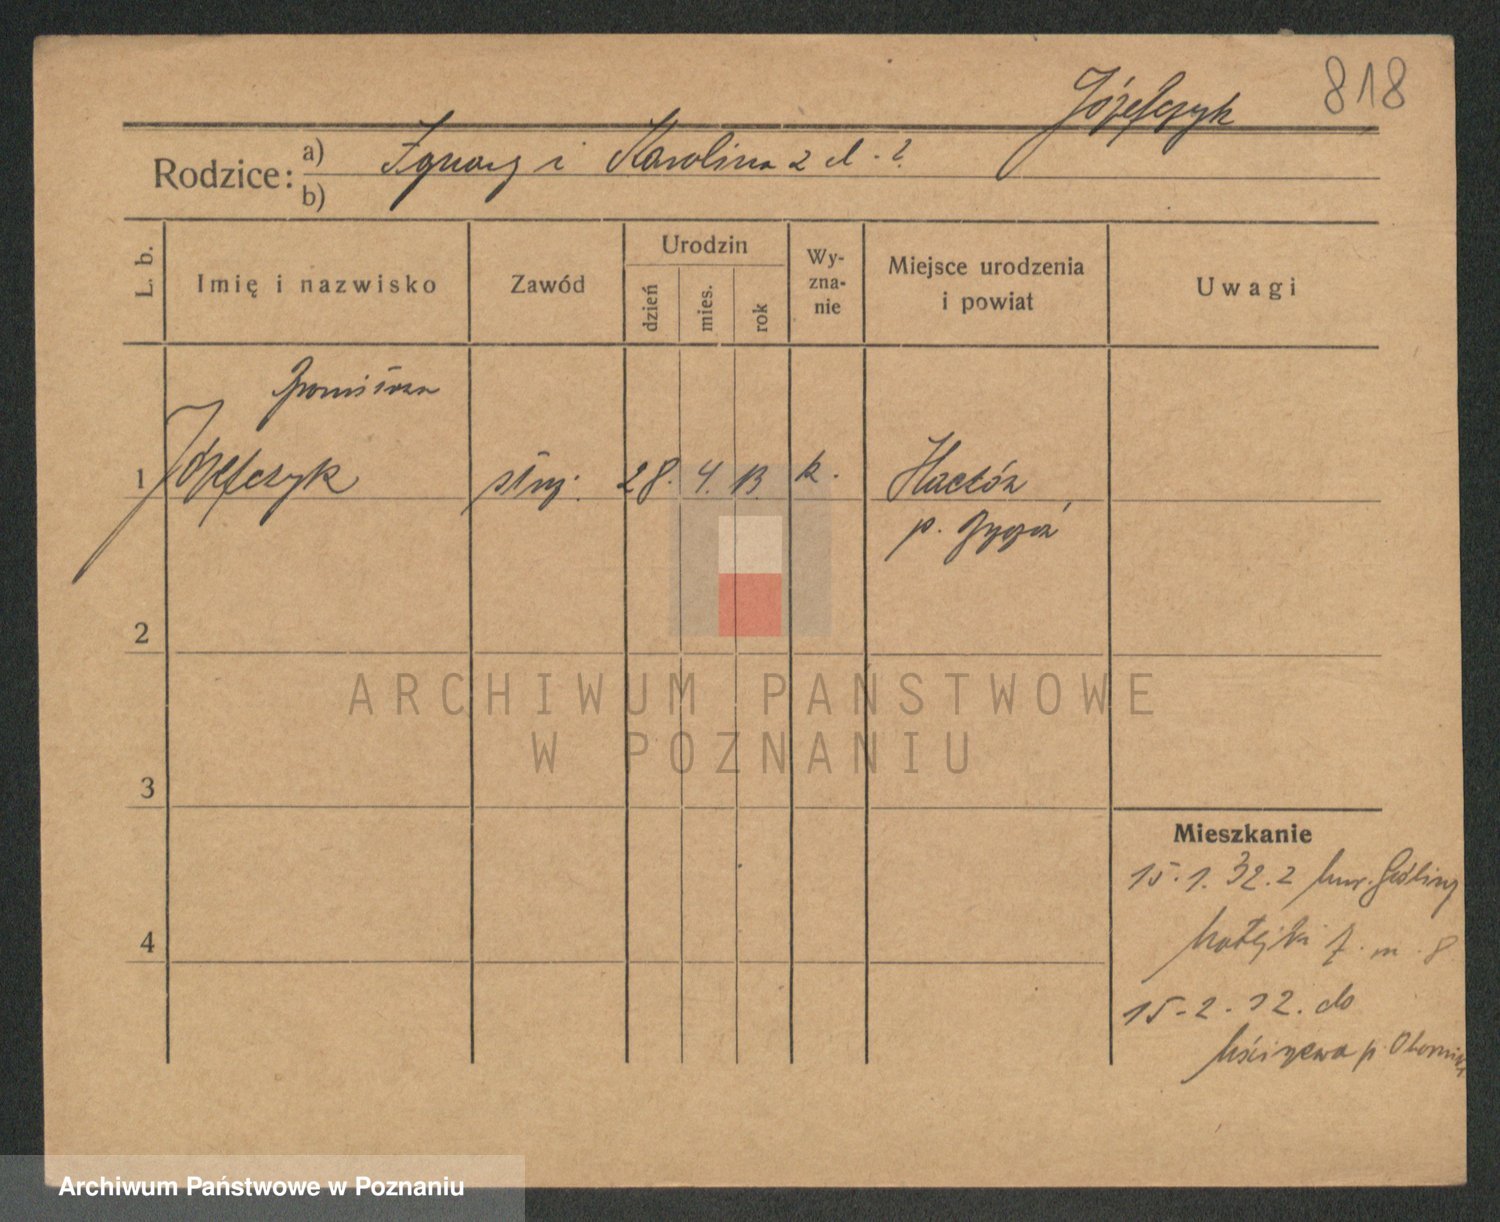 818
Józefczyk
Rodzice:
a) Ignacy i Karolina z d. ?
b)
L. b.
Imię i nazwisko
Zawód
Urodzin
dzień
mies.
rok
Wy-
zna-
nie
Miejsce urodzenia
i powiat
Uwagi
Bronisława
1 Józefczyk
służ. 28. 4. 13. k.
p.
2
3
4
Mieszkanie
15. 1. 32. z Mur. Gośliny
Matejki 7. m. 8
15. 2. 32. do
p. Oborniki
ARCHIWUM PAŃSTWOWE
W POZNANIU
Archiwum Państwowe w Poznaniu